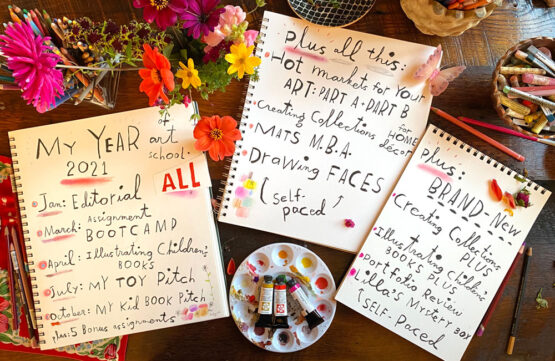 My YEAR
art
school:
2021
ALL
Jan: Editorial
assignment
March: BOOTCAMP
April: Illustrating Children's
BOOKS
July: MY TOY Pitch
October: MY Kid Book Pitch
Plus: 5 Bonus assignments
Plus all this:
Hot markets for Your
ART: PART A + PART B
Creating Collections
for
HOME
décor
MATS M.B.A.
Drawing FACES
(self-
paced
Plus:
BRAND-NEW
Creating Collections
PLUS
Illustrating Childrens
BOOKS PLUS
Portfolio Review
Lilla's Mystery BOX
(SELF-Paced